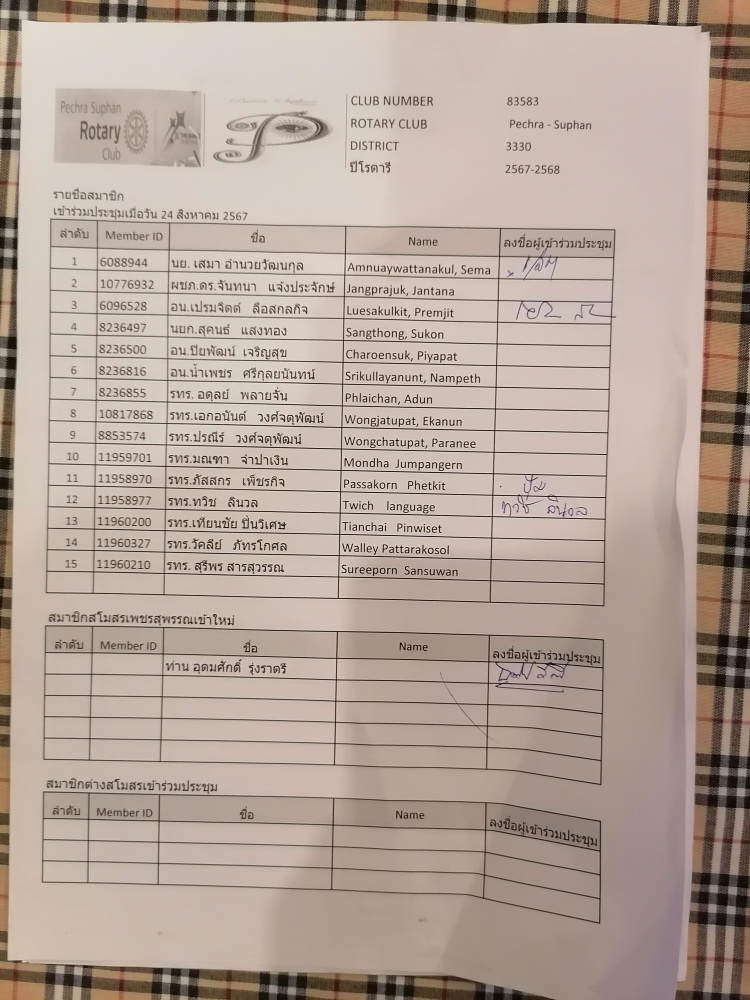 Pechra Suphan
Rotary
Club
CLUB NUMBER 83583
ROTARY CLUB Pechra - Suphan
DISTRICT 3330
ปีโรตารี 2567-2568
รายชื่อสมาชิก
เข้าร่วมประชุมเมื่อวัน 24 สิงหาคม 2567
ลำดับ Member ID ชื่อ Name ลงชื่อผู้เข้าร่วมประชุม
1 6088944 นย. เสมา อำนวยวัฒนกุล Amnuaywattanakul, Sema
2 10776932 ผชภ.ดร.จันทนา แจ้งประจักษ์ Jangprajuk, Jantana
3 6096528 อน.เปรมจิตต์ ลือสกลกิจ Luesakulkit, Premjit
4 8236497 นยก.สุคนธ์ แสงทอง Sangthong, Sukon
5 8236500 อน.ปิยพัฒน์ เจริญสุข Charoensuk, Piyapat
6 8236816 อน.น้ำเพชร ศรีกุลยนันทน์ Srikullayanunt, Nampeth
7 8236855 รทร. อดุลย์ พลายจั่น Phlaichan, Adun
8 10817868 รทร.เอกอนันต์ วงศ์จตุพัฒน์ Wongjatupat, Ekanun
9 8853574 รทร.ปรณีร์ วงศ์จตุพัฒน์ Wongchatupat, Paranee
10 11959701 รทร.มณฑา จำปาเงิน Mondha Jumpangern
11 11958970 รทร.ภัสสกร เพ็ชรกิจ Passakorn Phetkit ปุ้ม
12 11958977 รทร.ทวิช ลินวล Twich language ทวิช ลินวล
13 11960200 รทร.เทียนชัย ปิ่นวิเศษ Tianchai Pinwiset
14 11960327 รทร.วัคลีย์ ภัทรโกศล Walley Pattarakosol
15 11960210 รทร. สุรีพร สารสุวรรณ Sureeporn Sansuwan
สมาชิกสโมสรเพชรสุพรรณเข้าใหม่
ลำดับ Member ID ชื่อ Name ลงชื่อผู้เข้าร่วมประชุม
ท่าน อุดมศักดิ์ รุ่งราตรี
สมาชิกต่างสโมสรเข้าร่วมประชุม
ลำดับ Member ID ชื่อ Name ลงชื่อผู้เข้าร่วมประชุม